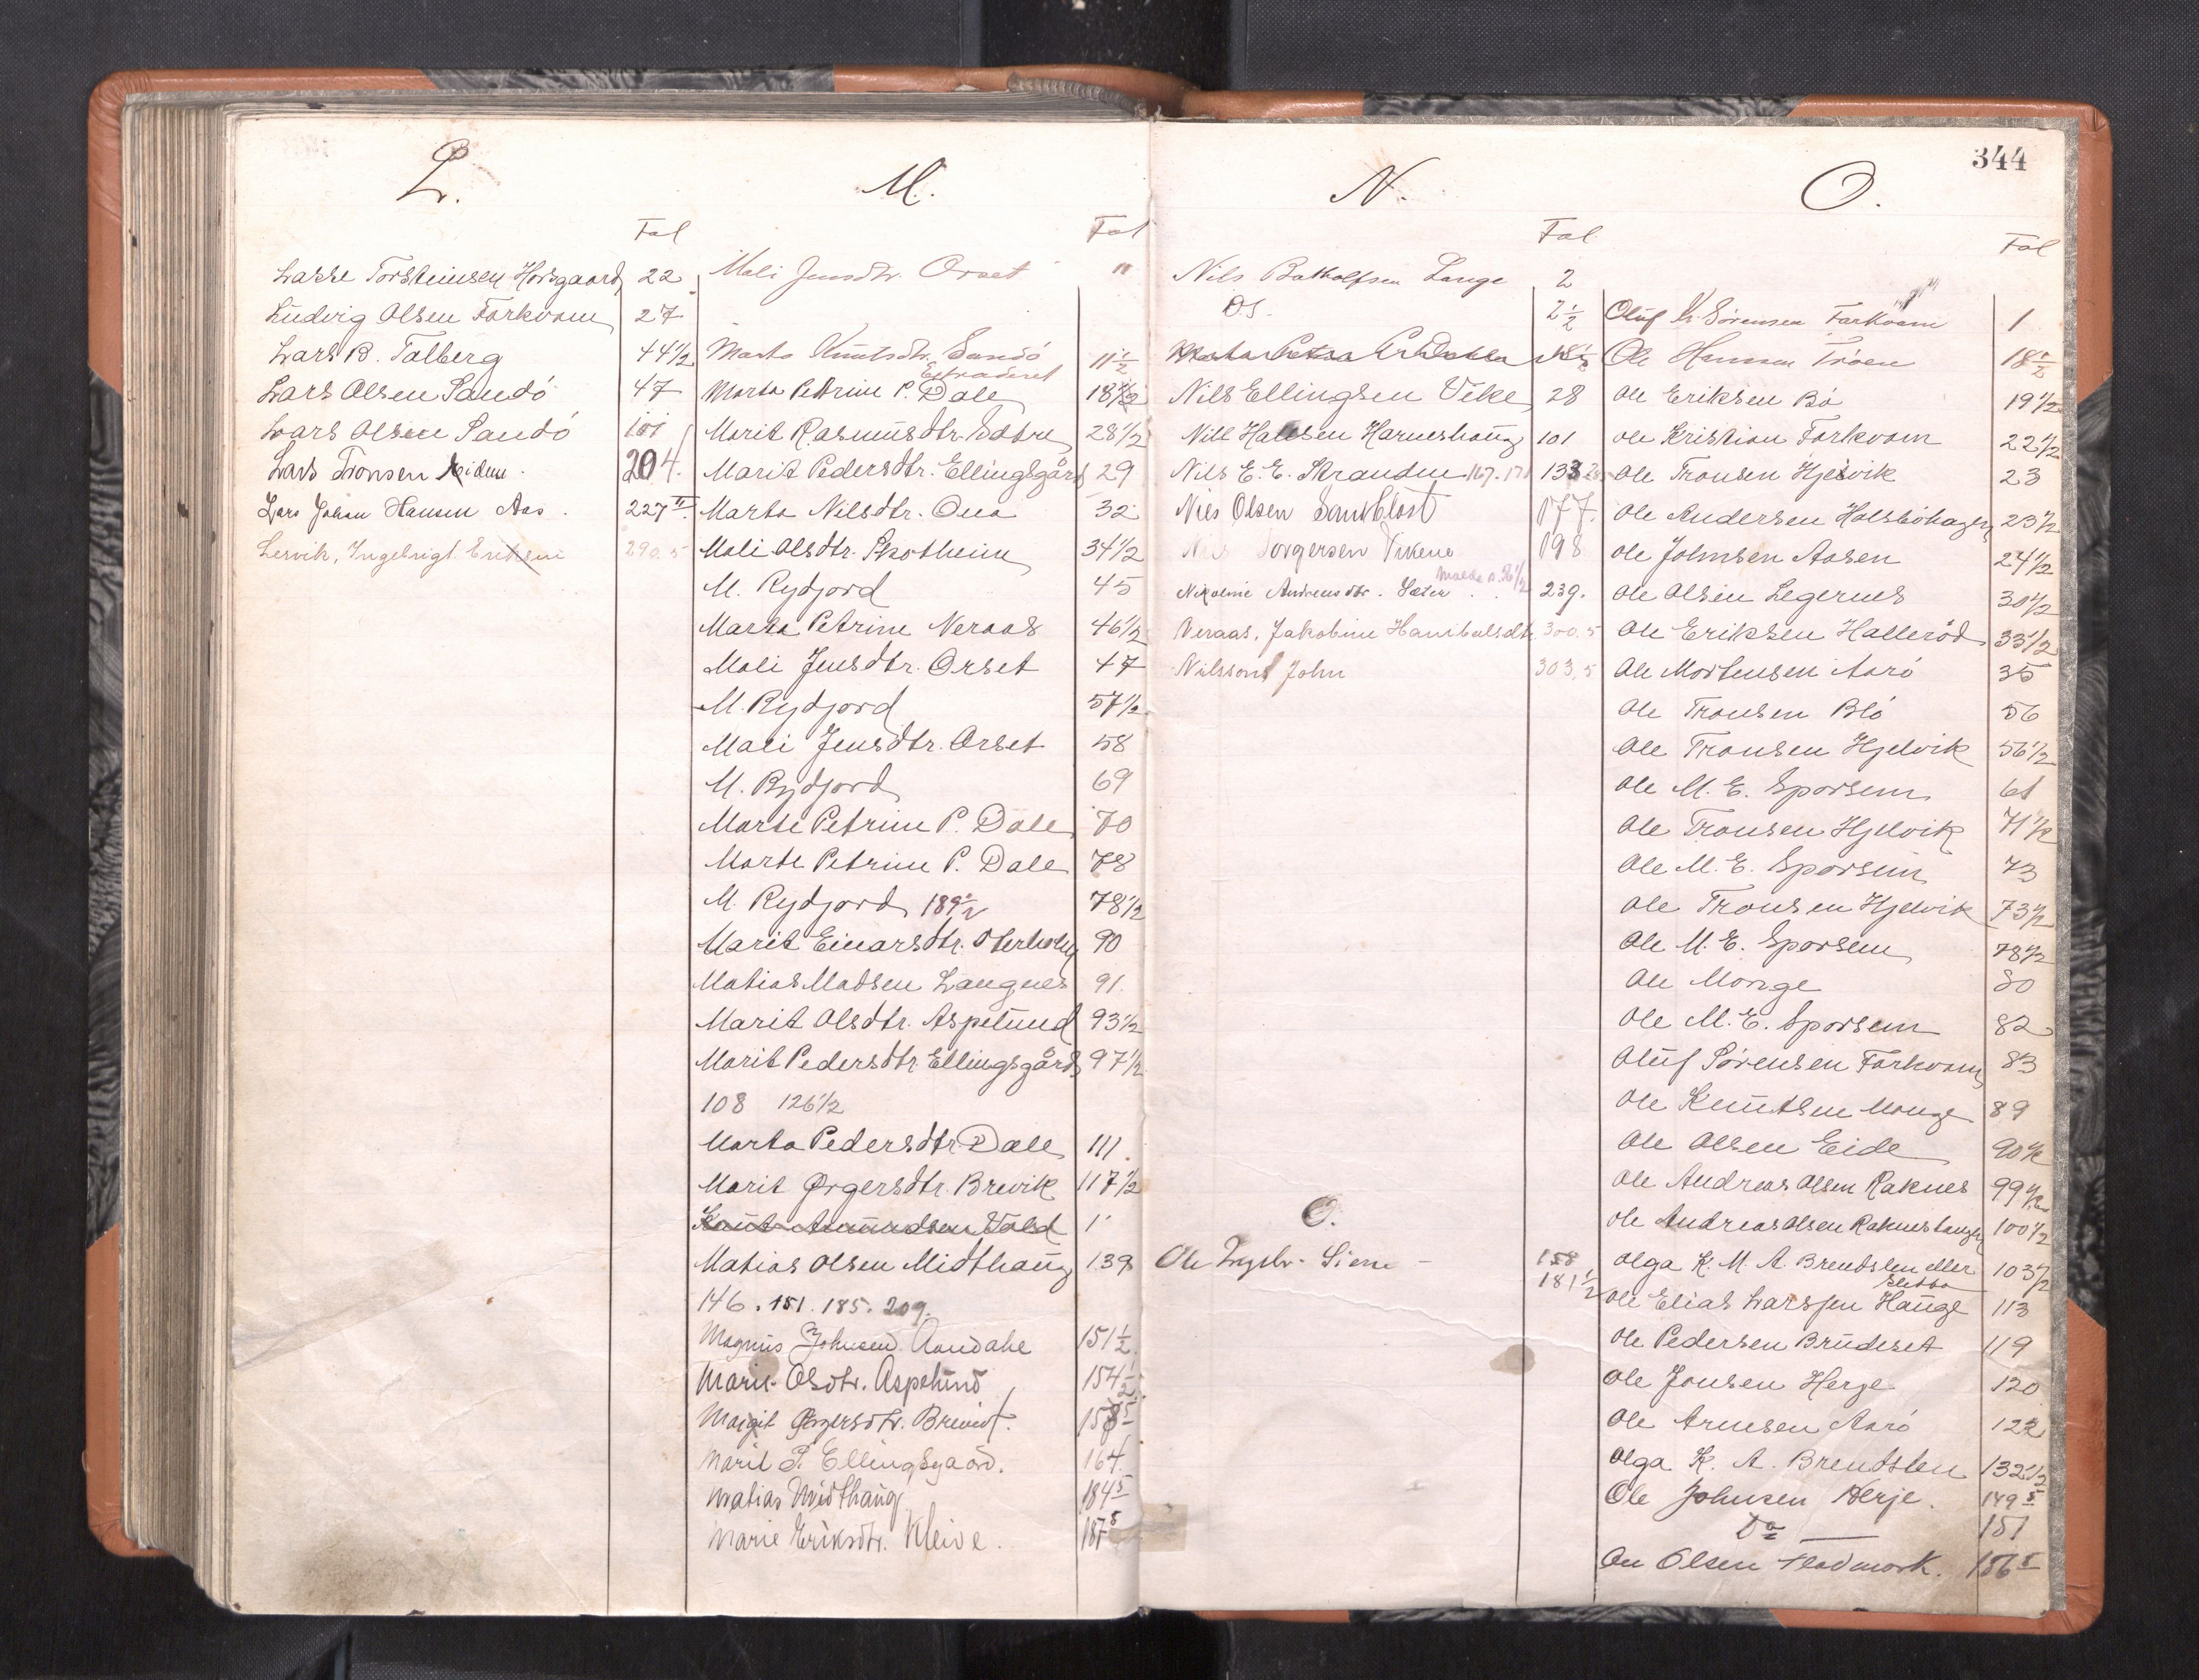 344
L.
Fol
Lasse Torsteinsen Horsgaard 22
Ludvig Olsen Farkvam 27
Lars B. Talberg 44 1/2
Lars Olsen Sandö 47
Lars Olsen Sandö 101
Lars Tronsen 204.
Lars Johan Hansen Aas. 227
Lervik, Ingebrigt Eriksen 290.5
M.
Fol
Mali Jensdtr. Orset 11
Marta Knutsdtr. Sandö 11 1/2
Extraderet
Marta Petrine P. Dale 18 1/2
Marit Rasmusdtr. 28 1/2
Marit Pedersdtr. Ellingsgård 29
Marta Nilsdtr. Ona 32
Mali Olsdtr. Skotheim 34 1/2
M. Rydjord 45
Marta Petrine Neraas 46 1/2
Mali Jensdtr. Orset 47
M. Rydjord 57 1/2
Mali Jensdtr. Orset 58
M. Rydjord 69
Marte Petrine P. Dale 70
Marte Petrine P. Dale 78
M. Rydjord 189 1/2 78 1/2
Marit Einarsdtr. Oterholm 90
Matias Madsen Langnes 91.
Marit Olsdtr. Aspelund 93 1/2
Marit Pedersdtr. Ellingsgård 97 1/2
108 126 1/2
Marta Pedersdtr. Dale 111.
Marit Ørgersdtr. Brevik 117 1/2
Knut Amundsen Vold 1
Matias Olsen Midthaug 139
146. 151. 185. 209.
Magnus Johnsen Aandahl 151 1/2
Marit Olsdtr. Aspelund 154 1/2
Margit Ørgersdtr. Brevik. 158 5
Marit P. Ellingsgaard. 164.
Matias Midthaug 184 5
Marie Eriksdtr. Kleive. 187 5
N.
Fol
Nils Botholfsen Lange 2
Ds. 2 1/2
Nils Ellingsen Vike 28
Nils Halesen Harneshaug 101
Nils E. E. Stranden 167. 171 133
Nils Olsen Sandblåst 177.
Nils Torgersen Vikene 198
Nikoline Andreasdtr. Sæter 239.
Neraas, Jakobine Hanibalsdtr 300.5
Nilsson, John 303,5
O.
Ole Ingebr. Siene - 158
181 1/2
O.
Fol
Oluf Kr. Sørensen Farkvam 1
Ole Hansen Tröen 18 1/2
Ole Eriksen Bö 19 1/2
Ole Kristian Farkvam 22 1/2
Ole Tronsen Hjelvik 23
Ole Andersen Holsböhagen 23 1/2
Ole Johnsen Aasen 24 1/2
Ole Olsen Legernes 30 1/2
Ole Eriksen Halleröd 33 1/2
Ole Mortensen Aarö 35
Ole Tronsen Blö 56
Ole Tronsen Hjelvik 56 1/2
Ole M. E. Sporsem 61
Ole Tronsen Hjelvik 71 1/2
Ole M. E. Sporsem 73
Ole Tronsen Hjelvik 73 1/2
Ole M. E. Sporsem 78 1/2
Ole Monge 80
Ole M. E. Sporsem 82
Oluf Sörensen Farkvam 83
Ole Knutsen Monge 89
Ole Olsen Eide 90 1/2
Ole Andreas Olsen Raknes 99 1/2
Ole Andreas Olsen Rakneshaugen 100 1/2
Olga K. M. A. Brendslen eller 103 1/2
Sletta
Ole Elias Larssen Hauge 113
Ole Pedersen Brudeset 119
Ole Jonsen Herje 120
Ole Arnesen Aarö 122
Olga K. A. Brendslen 132 1/2
Ole Johnsen Herje. 149 5
Do — 151
Ole Olsen Hadmork. 156 5